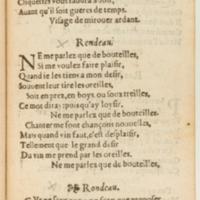 Auant qu'il soit gueres de temps.
Visage de mirouer ardant.
Rondeau.
NE me parlez que de bouteilles,
Si me voulez faire plaisir,
Quand ie les tiens a mon desir,
Souuent leur tire les oreilles,
Soit en prez, en boys ou soux treilles,
Ce mot diray: pourquoy loysir,
Ne me parlez que de bouteilles.
Chanter me font chançons nouuelles,
Mais quand vin faut, c'est desplaisir,
Tellement que le grand desir
Du vin me prend par les oreilles.
Ne me parlez que de bouteilles,
Rondeau.